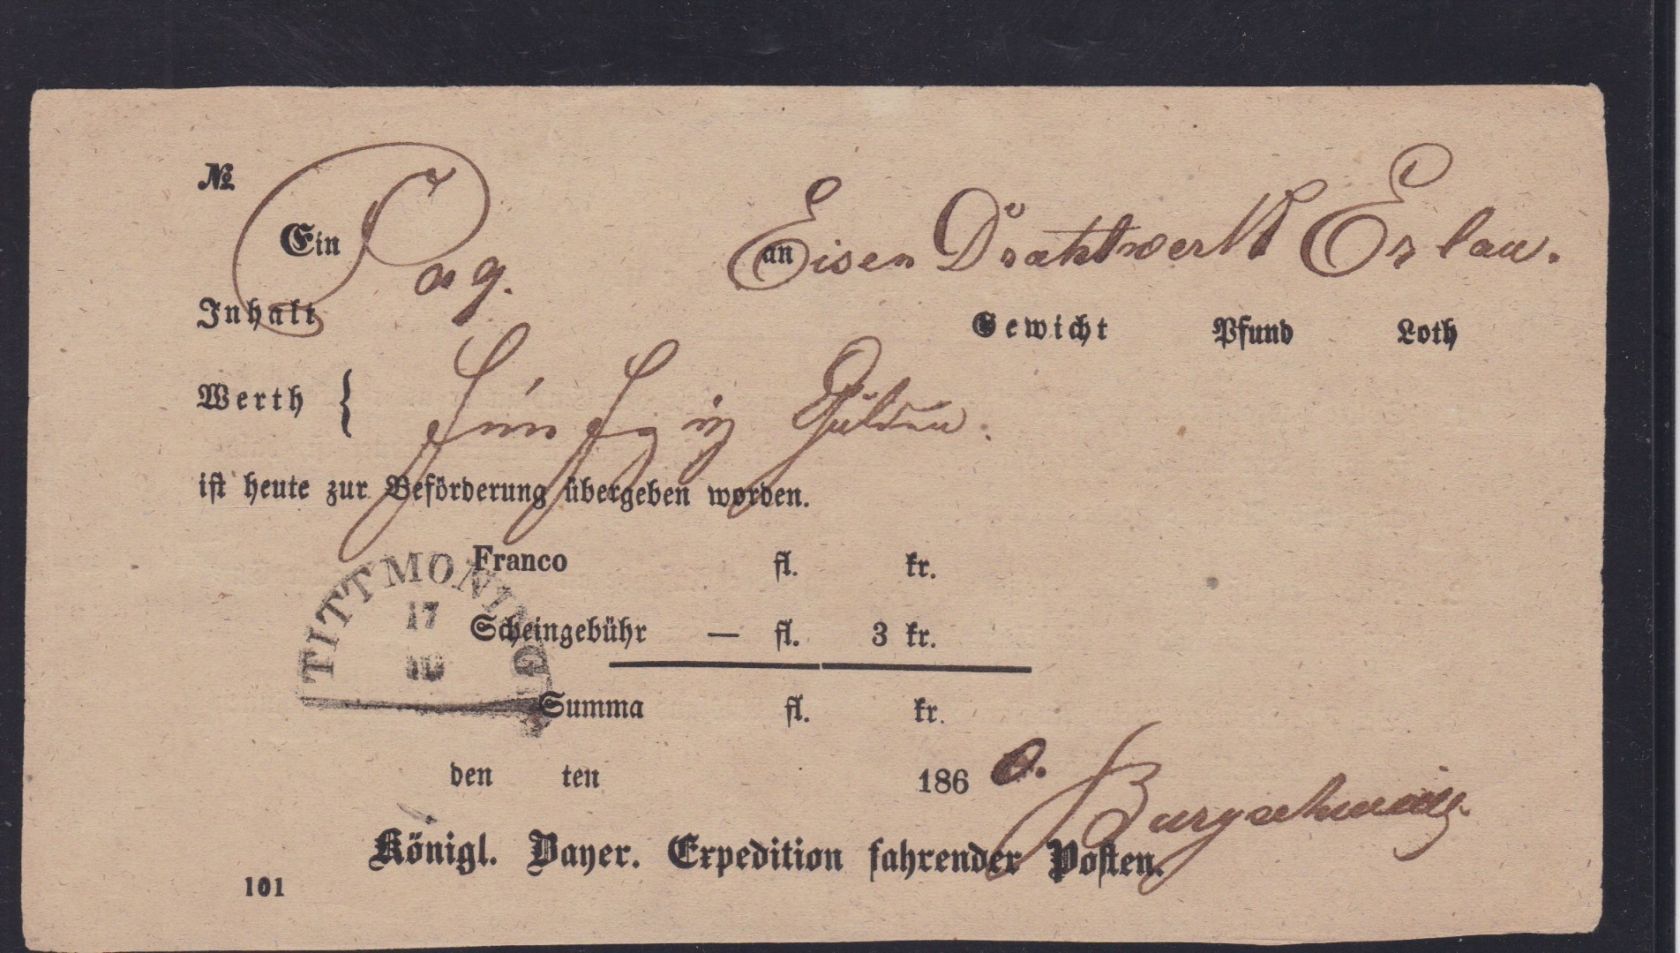 №
Ein Pag. an Eisen Drahtwerk Erlau.
Inhalt Gewicht Pfund Loth
Werth { fünfzig Gulden.
ist heute zur Beförderung übergeben worden.
Franco fl. kr.
TITTMONING
17
10
Scheingebühr — fl. 3 kr.
Summa fl. kr.
den ten 1860.
Königl. Bayer. Expedition fahrender Posten.
101